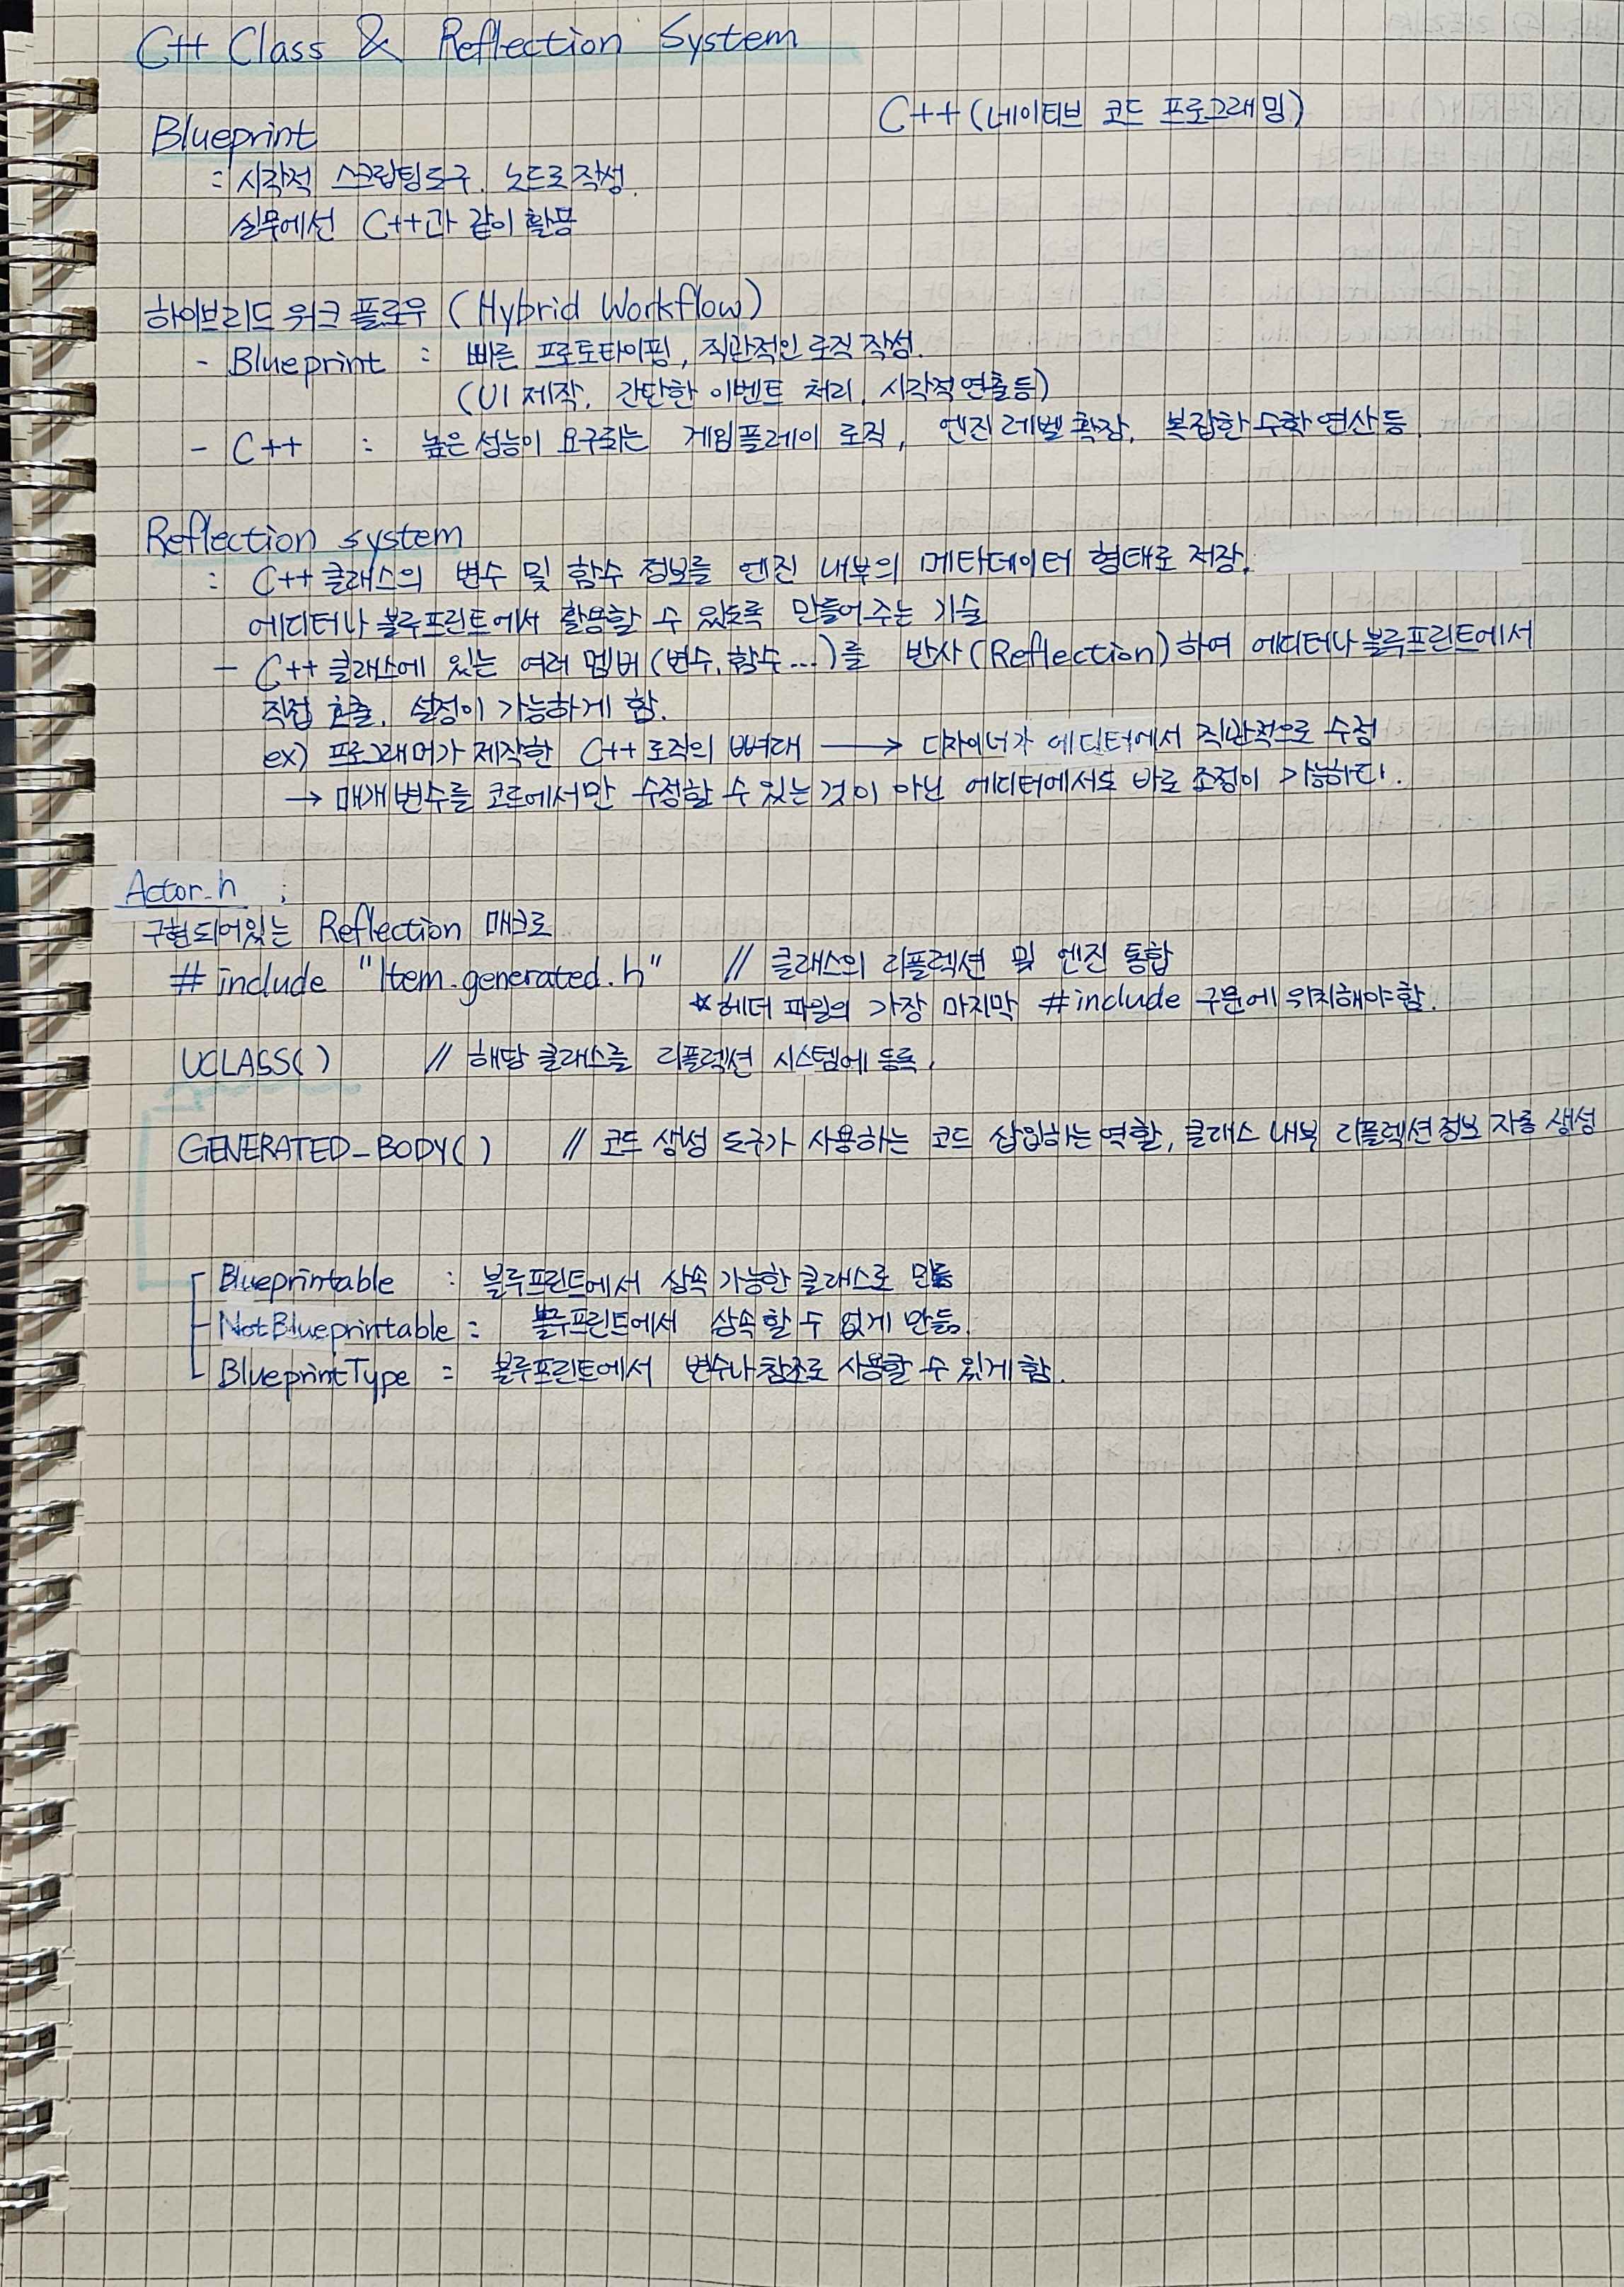 C++ Class & Reflection System
C++ (네이티브 코드 프로그래밍)
Blueprint
: 시각적 스크립팅 도구. 노드로 작성.
실무에선 C++과 같이 활용
하이브리드 워크 플로우 (Hybrid Workflow)
- Blueprint : 빠른 프로토타이핑, 직관적인 로직 작성.
(UI 제작, 간단한 이벤트 처리, 시각적 연출 등)
- C++ : 높은 성능이 요구되는 게임플레이 로직, 엔진 레벨 확장, 복잡한 수학 연산 등
Reflection system
: C++ 클래스의 변수 및 함수 정보를 엔진 내부의 메타데이터 형태로 저장.
에디터나 블루프린트에서 활용할 수 있도록 만들어 주는 기술
- C++ 클래스에 있는 여러 멤버 (변수, 함수...)를 반사(Reflection)하여 에디터나 블루프린트에서
직접 호출, 설정이 가능하게 함.
ex) 프로그래머가 제작한 C++ 로직의 뼈대 → 디자이너가 에디터에서 직관적으로 수정
→ 매개변수를 코드에서만 수정할 수 있는 것이 아닌 에디터에서도 바로 조정이 가능하다.
Actor.h :
구현되어있는 Reflection 매크로
# include "Item.generated.h" // 클래스의 리플렉션 및 엔진 통합
* 헤더 파일의 가장 마지막 #include 구문에 위치해야 함.
UCLASS() // 해당 클래스를 리플렉션 시스템에 등록.
GENERATED_BODY() // 코드 생성 도구가 사용하는 코드 삽입하는 역할, 클래스 내부 리플렉션 정보 자동 생성
Blueprintable : 블루프린트에서 상속 가능한 클래스로 만듦
NotBlueprintable : 블루프린트에서 상속 할 수 없게 만듦.
BlueprintType : 블루프린트에서 변수나 참조로 사용할 수 있게 함.